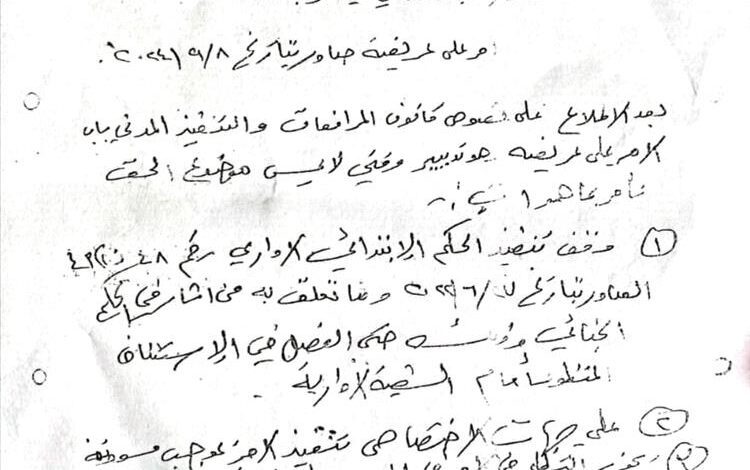 امر على عريضة صادر بتاريخ ٢٠٢٤/٩/٨
بعد الاطلاع على نصوص قانون المرافعات والتنفيذ المدني باب
الامر على عريضة هو تدبير وقتي لا يمس موضوع الحق
نأمر بما هو آت :-
① وقف تنفيذ الحكم الابتدائي الاداري رقم ٤٨
الصادر بتاريخ وما تعلق به من
الجنائي حتى الفصل في الاستئناف
المنظور أمام الشعبة الادارية .
② على جهات الاختصاص تنفيذ الامر بموجب مسودته